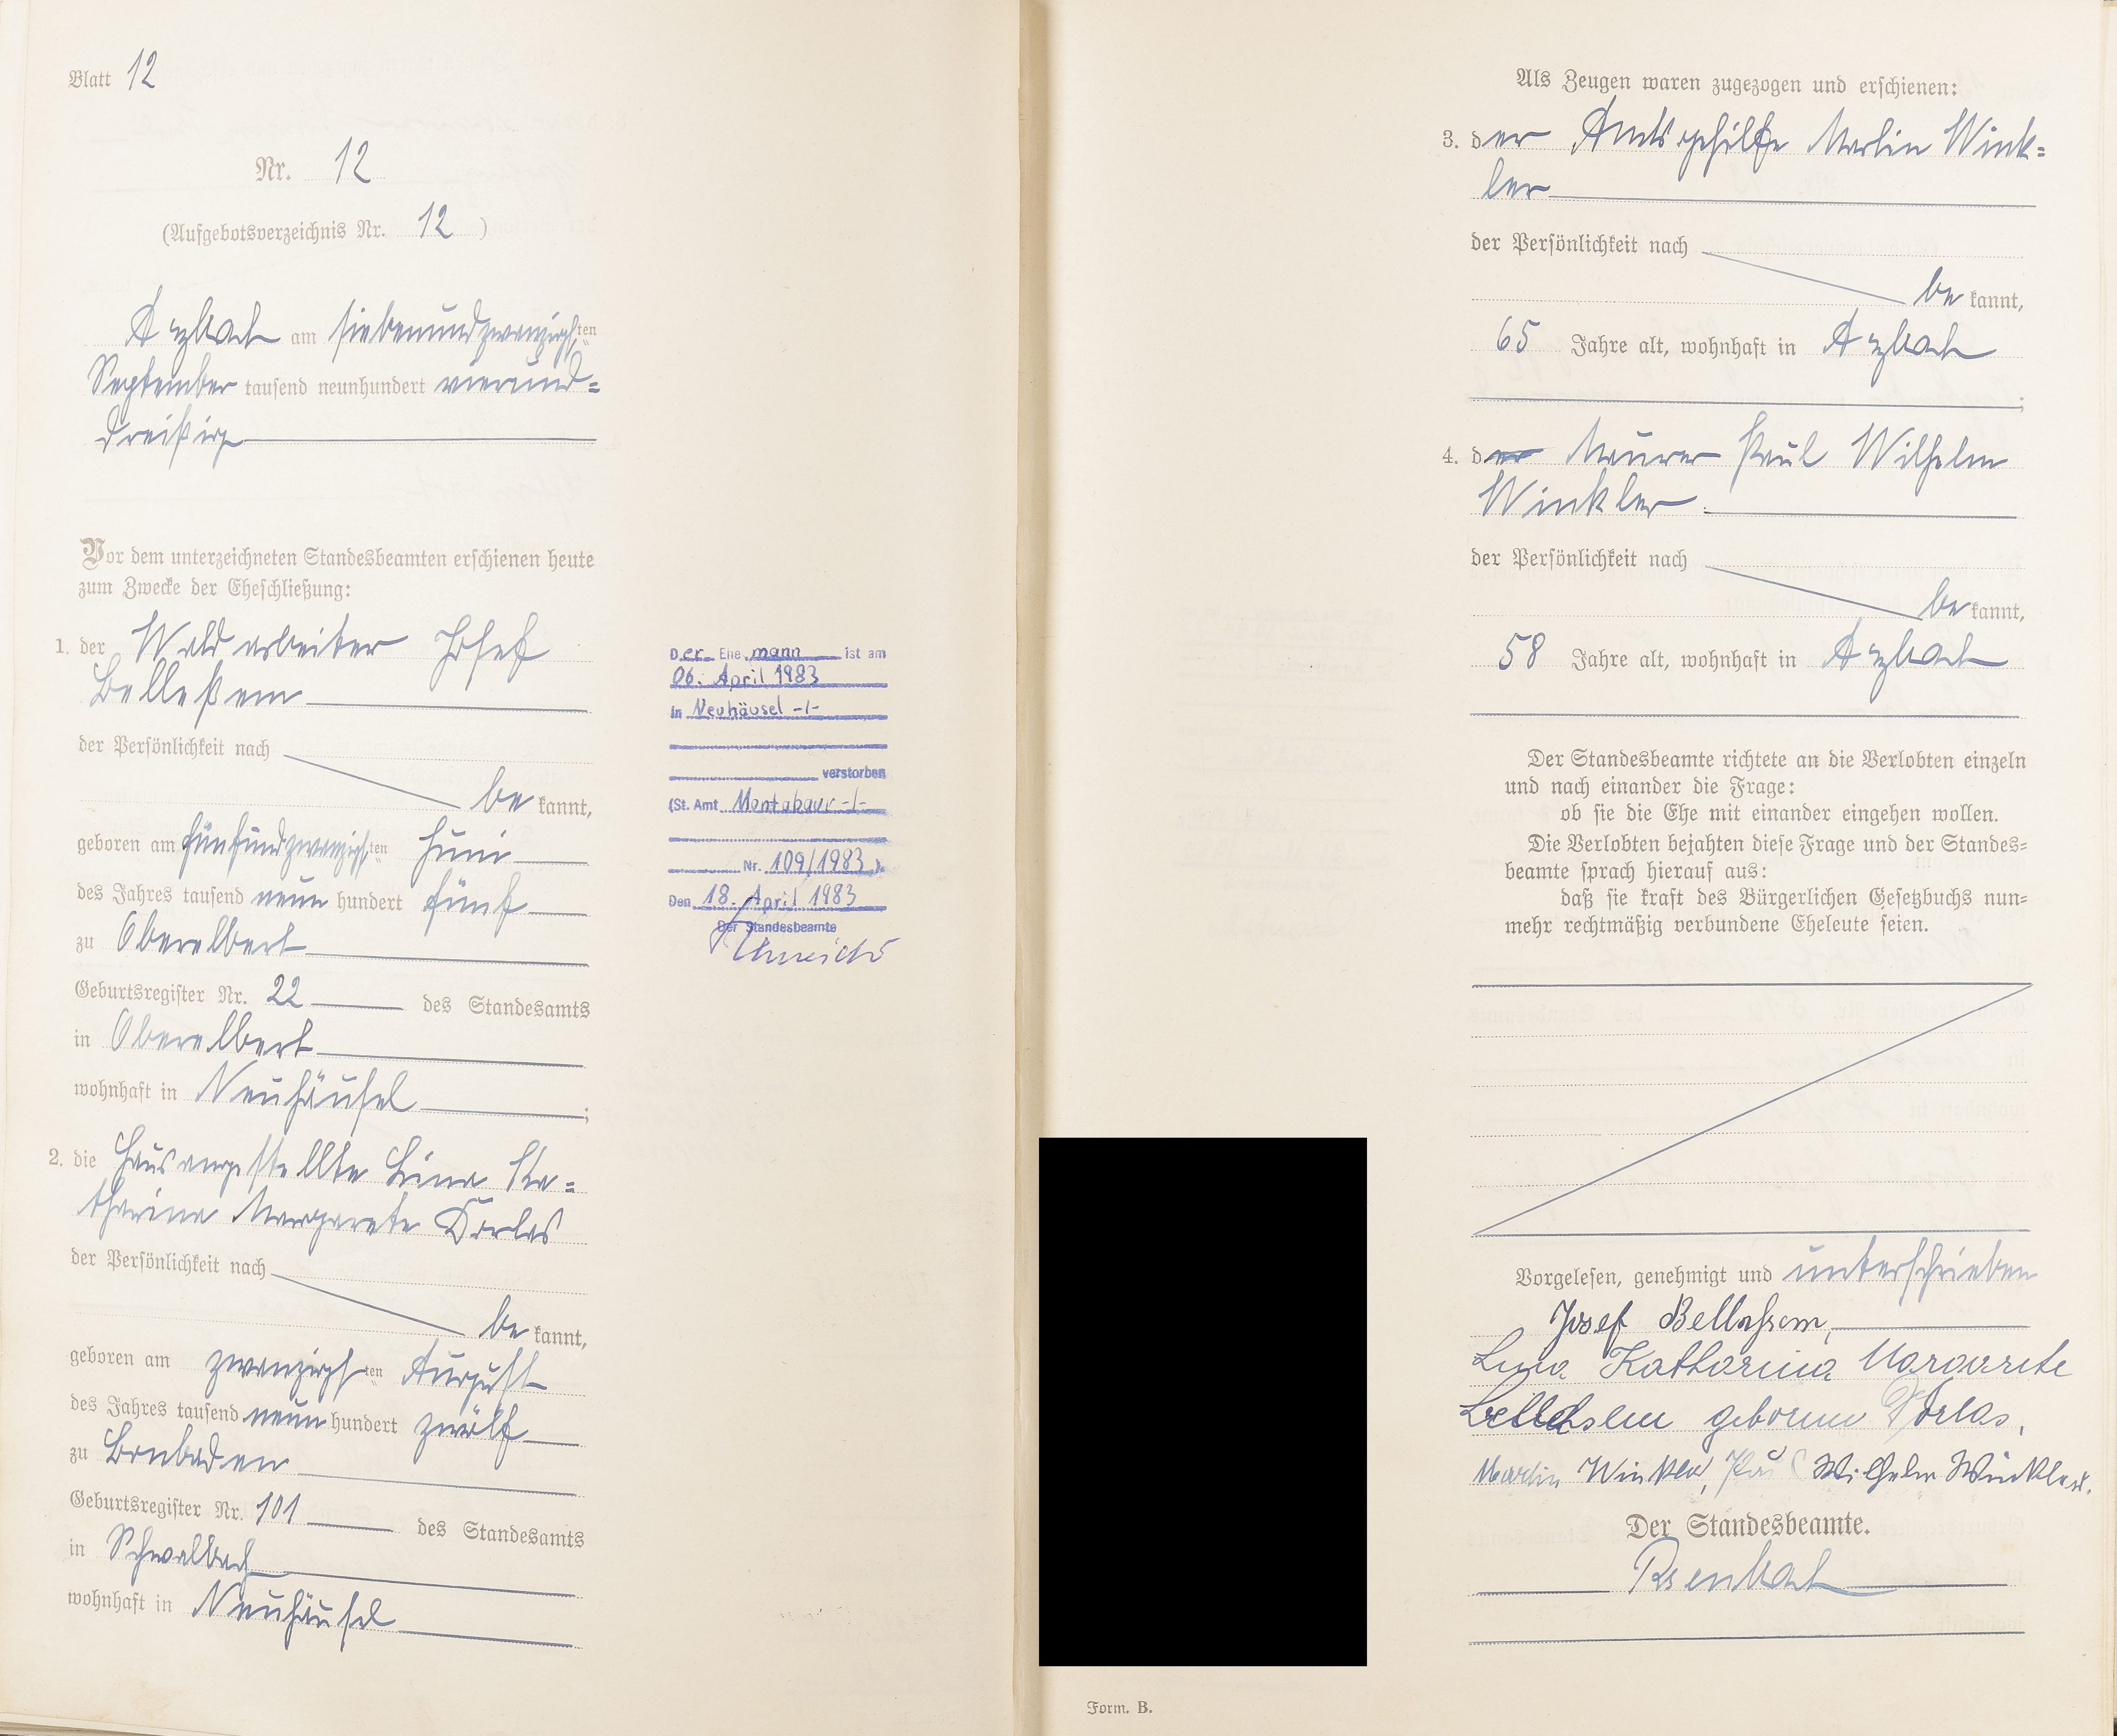 Blatt 12
Nr. 12
(Aufgebotsverzeichnis Nr. 12 )
Arzbach am siebenundzwanzigsten
September tausend neunhundert vierund=
dreißig
Vor dem unterzeichneten Standesbeamten erschienen heute
zum Zwecke der Eheschließung:
1. der Waldarbeiter Josef
Belleßem
der Persönlichkeit nach
be kannt,
geboren am fünfundzwanzigsten Juni
des Jahres tausend neun hundert fünf
zu Oberelbert
Geburtsregister Nr. 22 des Standesamts
in Oberelbert
wohnhaft in Neuhäusel ;
2. die Hausangestellte Lina Ka=
tharina Margarete Dorlas
der Persönlichkeit nach
be kannt,
geboren am zwanzigsten August
des Jahres tausend neun hundert zwölf
zu
Geburtsregister Nr. 101 des Standesamts
in Schwalbach
wohnhaft in Neuhäusel
Der Ehemann ist am
06. April 1983
in Neuhäusel -/-
verstorben
(St. Amt Montabaur -/-
Nr. 109/1983 ).
Den 18. April 1983
Der Standesbeamte
Als Zeugen waren zugezogen und erschienen:
3. der Amtsgehilfe Martin Wink=
ler
der Persönlichkeit nach
be kannt,
65 Jahre alt, wohnhaft in Arzbach
;
4. der Maurer Paul Wilhelm
Winkler
der Persönlichkeit nach
be kannt,
58 Jahre alt, wohnhaft in Arzbach
Der Standesbeamte richtete an die Verlobten einzeln
und nach einander die Frage:
ob sie die Ehe mit einander eingehen wollen.
Die Verlobten bejahten diese Frage und der Standes=
beamte sprach hierauf aus:
daß sie kraft des Bürgerlichen Gesetzbuchs nun=
mehr rechtmäßig verbundene Eheleute seien.
Vorgelesen, genehmigt und unterschrieben
Josef Belleßem,
Lina Katharina Margarete
Belleßem geborene Dorlas,
Martin Winkler, Paul Wilhelm Winkler.
Der Standesbeamte.
Form. B.